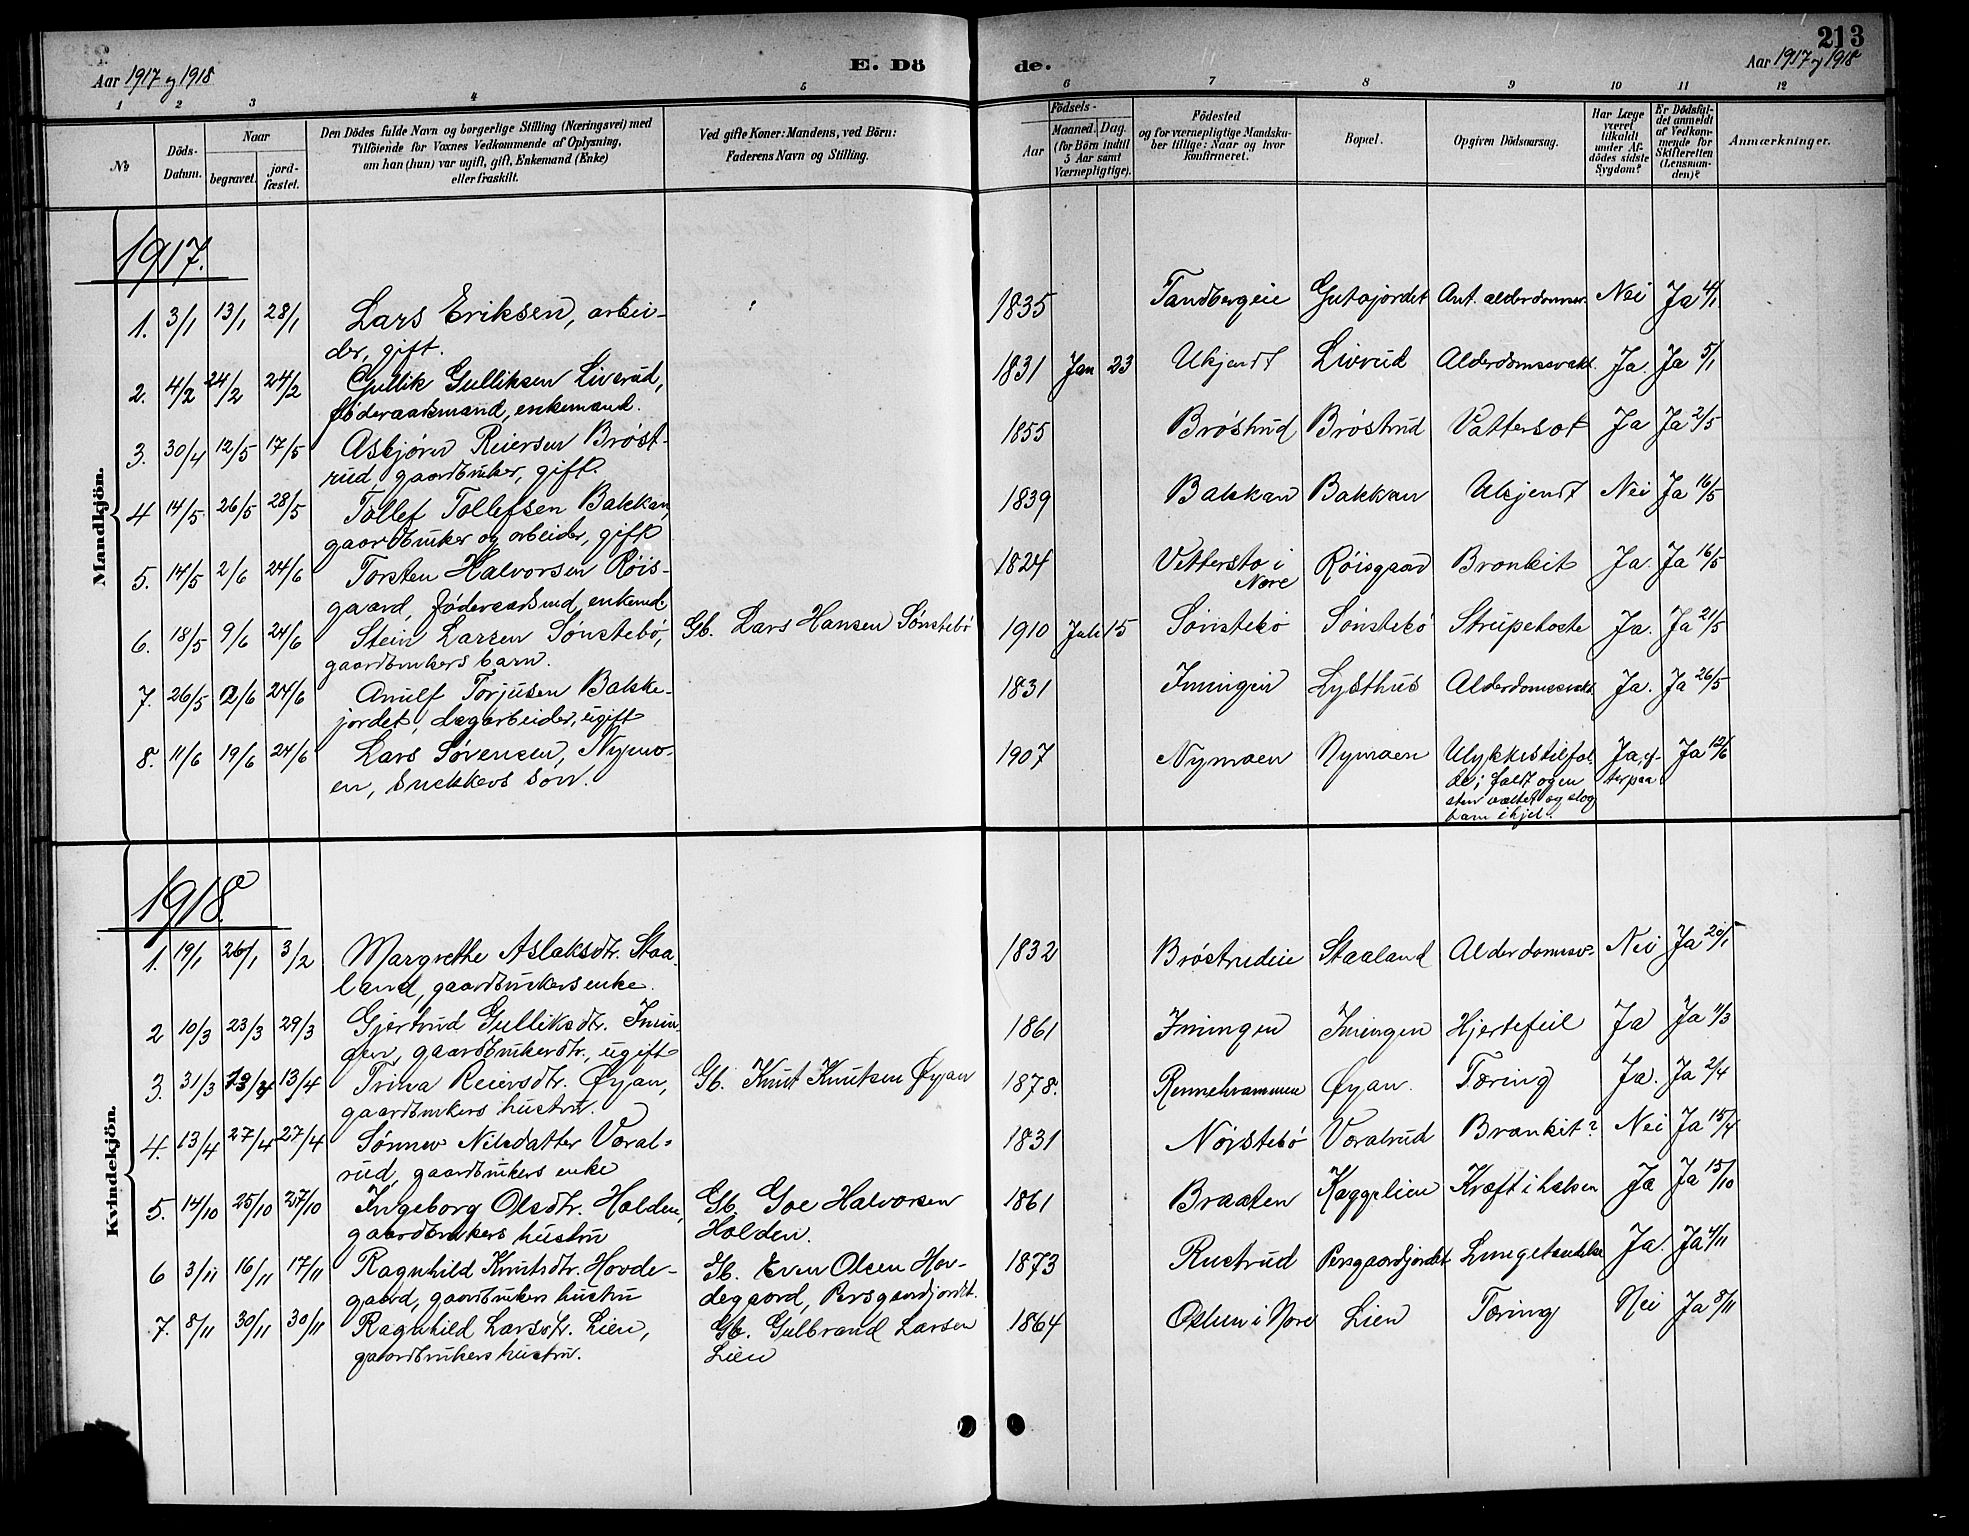 213
Aar 1917 og 1918
E. Döde.
Aar 1917 og 1918
1 2 3 4 5 6 7 8 9 10 11 12
No
Döds-Datum.
Naar
begravet.
jord-fæstet.
Den Dödes fulde Navn og borgerlige Stilling (Næringsvei) med
Tilföiende for Voxnes Vedkommende af Oplysning,
om han (hun) var ugift, gift, Enkemand (Enke)
eller fraskilt.
Ved gifte Koner: Mandens, ved Börn:
Faderens Navn og Stilling.
Födsels-
Aar
Maaned. Dag.
(for Börn indtil
5 Aar samt
Værnepligtige).
Födested
og for værnepligtige Mandska-
ber tillige: Naar og hvor
konfirmeret.
Bopæl.
Opgiven Dödsaarsag.
Har Læge
været
tilkaldt
under Af-
dödes sidste
Sygdom?
Er Dödsfal-
det anmeldt
af Vedkom-
mende for
Skifteretten
(Lensman-
den)?
Anmærkninger.
Mandkjön.
1917.
1. 3/1 13/1 28/1 Lars Eriksen, arbei- 1835 Tandbergeie Gutujordet Ant. alderdomssv. Nei Ja 4/1
der, gift.
2. 4/2 24/2 24/2 Gullik Gulliksen Liverud, 1831 Jan 23 Ukjendt Livrud Alderdomssvakh. Ja. Ja 5/1
föderaadsmand, enkemand.
3. 30/4 12/5 17/5 Asbjörn Reiersen Bröst- 1855 Bröstrud Bröstrud Vattersot Ja Ja 2/5
rud, gaardbruker, gift.
4 14/5 26/5 28/5 Tollef Tollefsen Bakkan, 1839 Bakkan Bakkan Ukjendt Nei Ja 16/5
gaardbruker og arbeider, gift
5. 14/5 2/6 24/6 Torsten Halvorsen Röis- 1824 Vettersto i Nore Röisgaard Bronkit Ja. Ja 16/5
gaard, föderaadsmd, enkemd.
6. 18/5 9/6 24/6 Stein Larsen Sönstebö, Gb. Lars Hansen Sönstebö 1910 Juli 15 Sönstebö Sönstebö Strupehoste Ja. Ja 21/5
gaardbrukers barn.
7. 26/5 2/6 24/6 Anulf Torjusen Bakke- 1831 Imingen Lysthus Alderdomssvakh. Ja. Ja 26/5
jordet, dagarbeider, ugift
8. 11/6 19/6 24/6 Lars Sörensen, Nymo- 1907 Nymoen Nymoen Ulykkestilfæl- Ja, ef- Ja 12/6
en, snekkers sön. de; faldt og en terpaa
sten væltet og slog
ham ihjel.
Kvindekjön.
1918.
1. 19/1 26/1 3/2 Margrethe Aslaksdtr. Staa- 1832 Bröstrudeie Staaland Alderdomssv. Nei Ja 20/1
land, gaardbrukers enke.
2 10/3 23/3 29/3 Gjertrud Gulliksdtr. Imin- 1861 Imingen Imingen Hjertefeil Ja Ja 11/3
gen, gaardbrukerdtr., ugift
3. 31/3 13/4 13/4 Trina Reiersdtr. Øyan, Gb. Knut Knutsen Øyan 1878. Rennehvammen Øyan. Tæring Ja. Ja 2/4
gaardbrukers hustru.
4. 13/4 27/4 27/4 Sönnev Nilsdatter Voral- 1831 Nörstebö Voralrud Bronkit? Nei Ja 15/4
rud, gaardbrukers enke
5. 14/10 25/10 27/10 Ingeborg Olsdtr. Holden, Gb. Goe Halvorsen 1861 Braaten Kaggelien Kræft i halsen Ja Ja 15/10
gaardbrukers hustru Holden.
6 3/11 16/11 17/11 Ragnhild Knutsdtr. Hovde- Gb. Even Olsen Hov- 1873 Rustrud Persgaardjordet Ja. Ja 4/11
gaard, gaardbrukers hustru degaard, Persgaardjordet.
7. 8/11 30/11 30/11 Ragnhild Larsdtr. Lien, Gb. Gulbrand Larsen 1864 i Nore Lien Tæring Nei Ja 8/11
gaardbrukers hustru. Lien